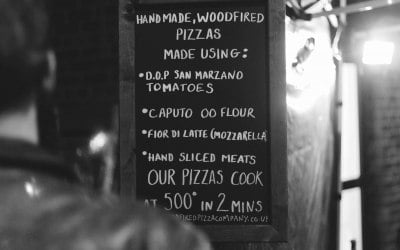 HANDMADE, WOODFIRED
PIZZAS
MADE USING:
•D.O.P SAN MARZANO
TOMATOES
•CAPUTO 00 FLOUR
•FIOR DI LATTE (MOZZARELLA
•HAND SLICED MEATS
OUR PIZZAS COOK
AT 500° IN 2 MINS